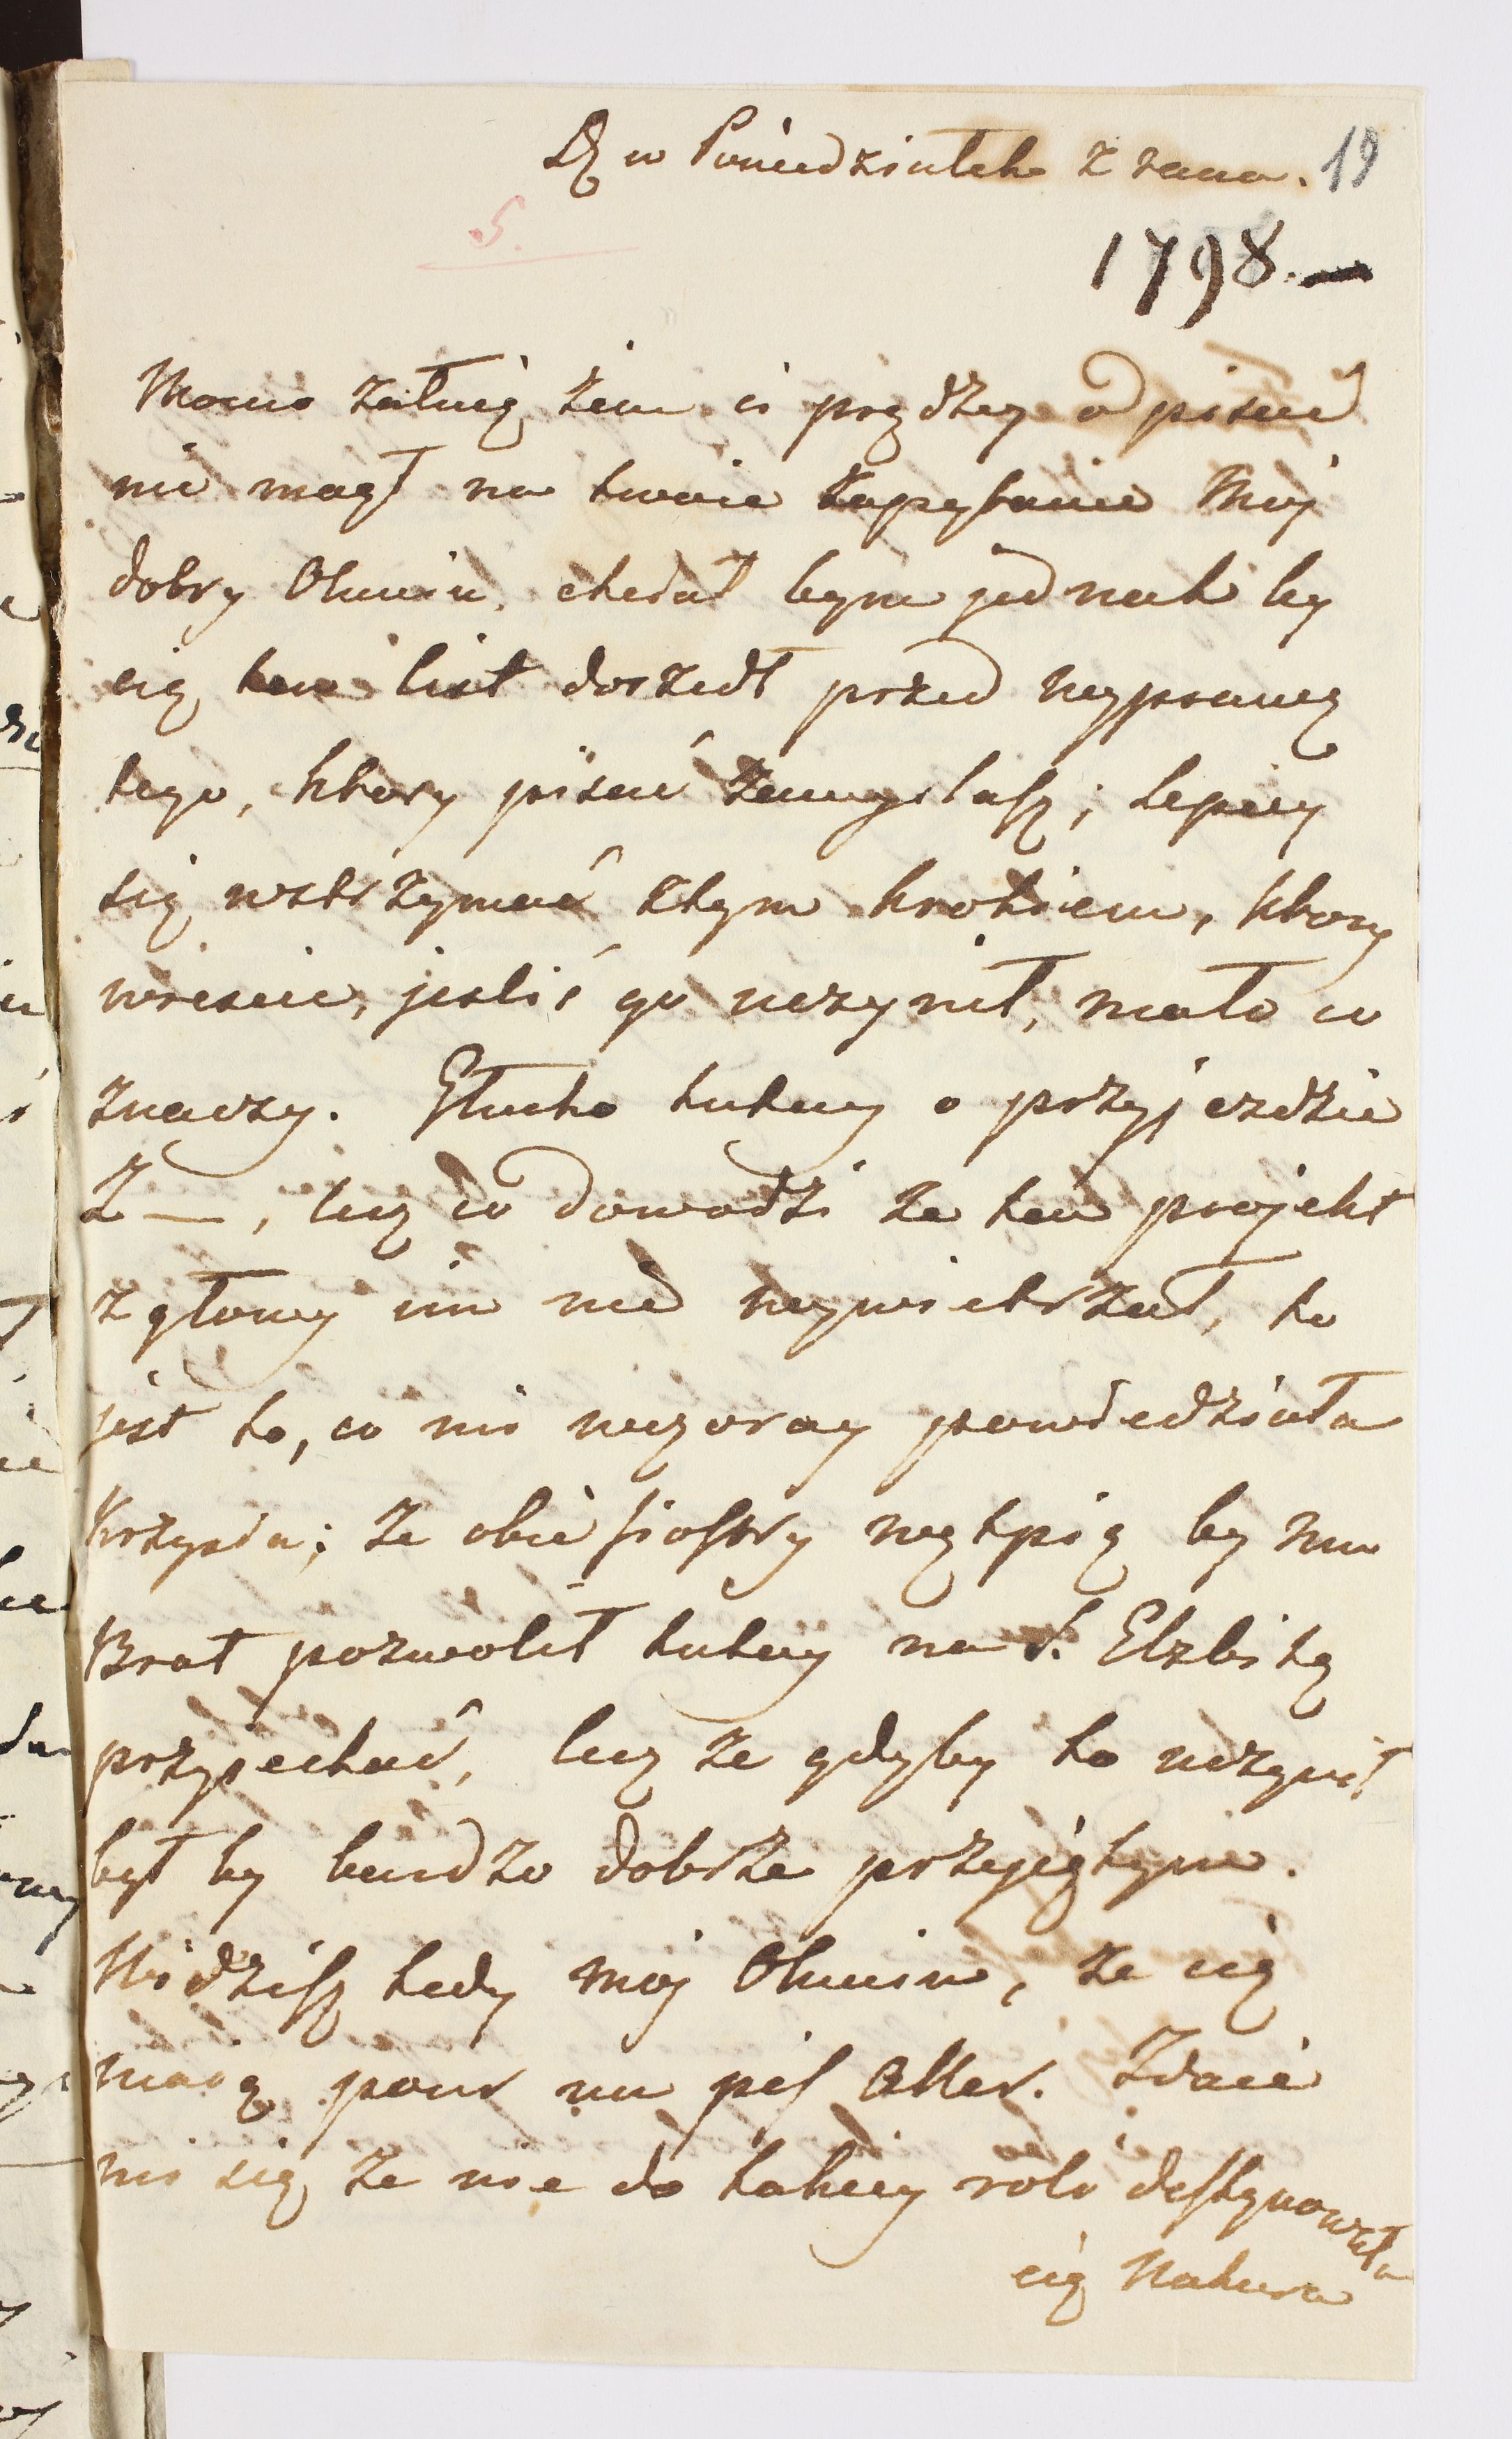 w Poniedziałek z rana. 19
5.
1798.—
Mocno żałuię żem ci prędzey odpisać
nie mogł na twoie zapytanie Moy
dobry Oluniu, chciał bym jednak by
cię ten list doszedł przed wyprawą
tego, ktory pisać zamyslasz; lepiey
się wstrzymać z tym krokiem, ktory
wrescie, jesliś go uczynił, mało co
znaczy. Głucho tutay o przyjezdzie
Z—, lecz co dowodzi że ten projekt
z głowy im nie wywietrzał, to
jest to, co mi wczoray powiedziała
Krzysia; że obie siostry wątpią by mu
Brat pozwolił tutay na S. Elzbietę
przyjechać, lecz że gdyby to uczynił
był by bardzo dobrze przyjętym.
Widzisz tedy moj Oluniu, że cię
maią pour un pis aller. Zdaie
mi się że nie do takiey roli destynowała
cię Natura